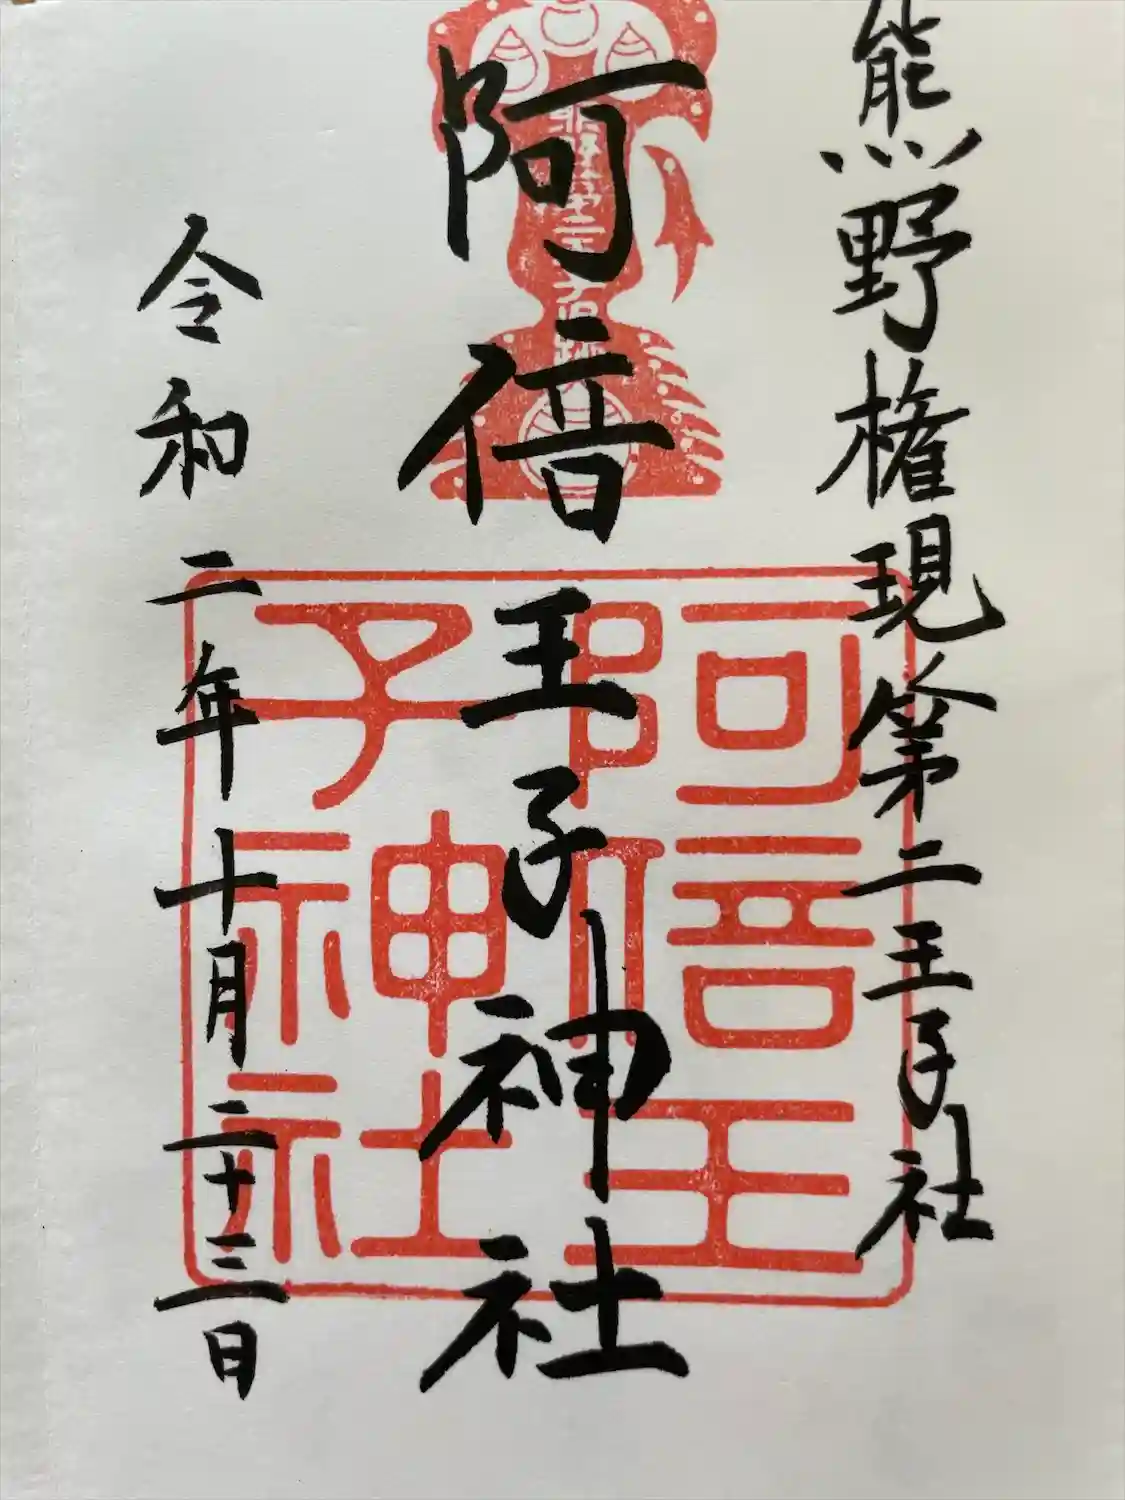 熊野権現第二王子社
阿倍王子神社
令和二年十月二十三日
阿倍王子神社